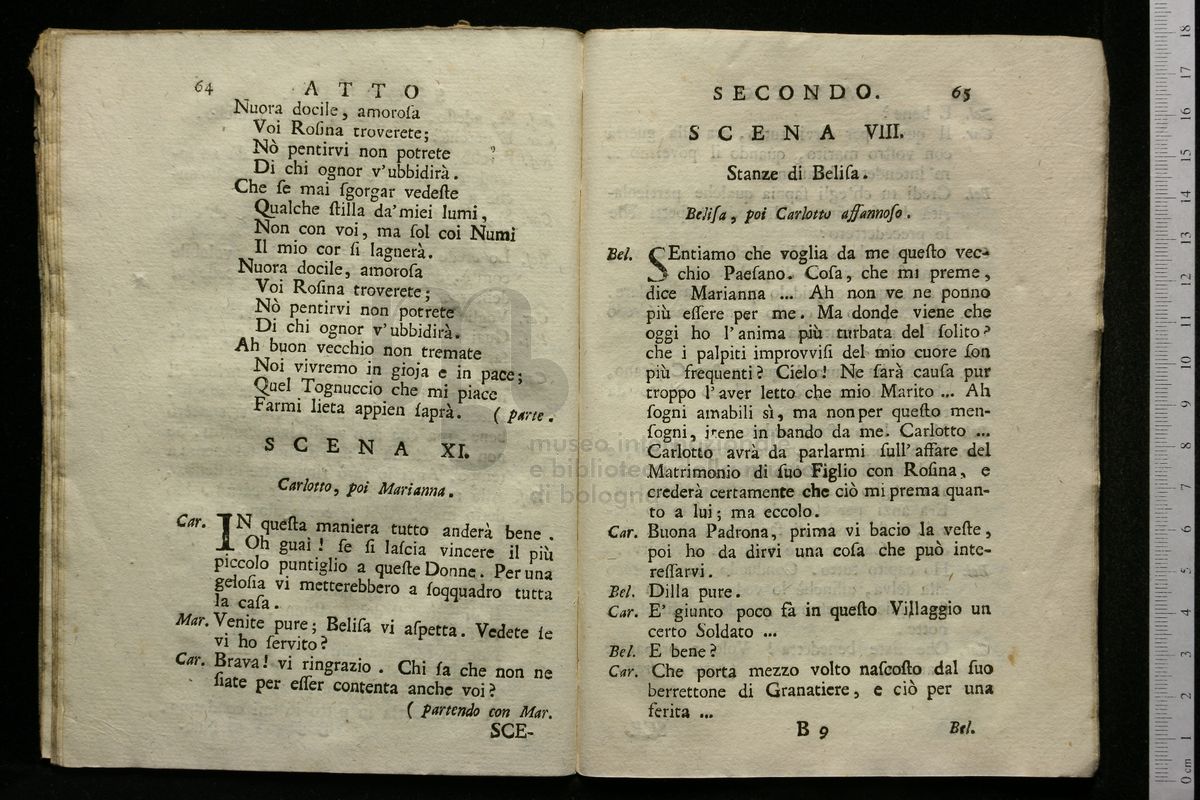 64 ATTO
Nuora docile, amoroſa
Voi Roſina troverete;
Nò pentirvi non potrete
Di chi ognor v'ubbidirà.
Che ſe mai ſgorgar vedeſte
Qualche ſtilla da'miei lumi,
Non con voi, ma ſol coi Numi
Il mio cor ſi lagnerà.
Nuora docile, amoroſa
Voi Roſina troverete;
Nò pentirvi non potrete
Di chi ognor v'ubbidirà.
Ah buon vecchio non tremate
Noi vivremo in gioja e in pace;
Quel Tognuccio che mi piace
Farmi lieta appien ſaprà. ( parte.
SCENA XI.
Carlotto, poi Marianna.
Car. IN queſta maniera tutto anderà bene.
Oh guai! ſe ſi laſcia vincere il più
piccolo puntiglio a queſte Donne. Per una
geloſia vi metterebbero a ſoqquadro tutta
la caſa.
Mar. Venite pure; Beliſa vi aſpetta. Vedete ſe
vi ho ſervito?
Car. Brava! vi ringrazio. Chi ſa che non ne
ſiate per eſſer contenta anche voi?
( partendo con Mar.
SCE-
SECONDO. 65
SCENA VIII.
Stanze di Beliſa.
Beliſa, poi Carlotto affannoſo.
Bel. SEntiamo che voglia da me queſto vec-
chio Paeſano. Coſa, che mi preme,
dice Marianna ... Ah non ve ne ponno
più eſſere per me. Ma donde viene che
oggi ho l'anima più turbata del ſolito?
che i palpiti improvviſi del mio cuore ſon
più frequenti? Cielo! Ne ſarà cauſa pur
troppo l'aver letto che mio Marito ... Ah
ſogni amabili sì, ma non per queſto men-
ſogni, itene in bando da me. Carlotto ...
Carlotto avrà da parlarmi ſull'affare del
Matrimonio di ſuo Figlio con Roſina, e
crederà certamente che ciò mi prema quan-
to a lui; ma eccolo.
Car. Buona Padrona, prima vi bacio la veſte,
poi ho da dirvi una coſa che può inte-
reſſarvi.
Bel. Dilla pure.
Car. E' giunto poco fà in queſto Villaggio un
certo Soldato ...
Bel. E bene?
Car. Che porta mezzo volto naſcoſto dal ſuo
berrettone di Granatiere, e ciò per una
ferita ...
B 9 Bel.
museo internazionale
e biblioteca
di bologna
0 cm 1 2 3 4 5 6 7 8 9 10 11 12 13 14 15 16 17 18